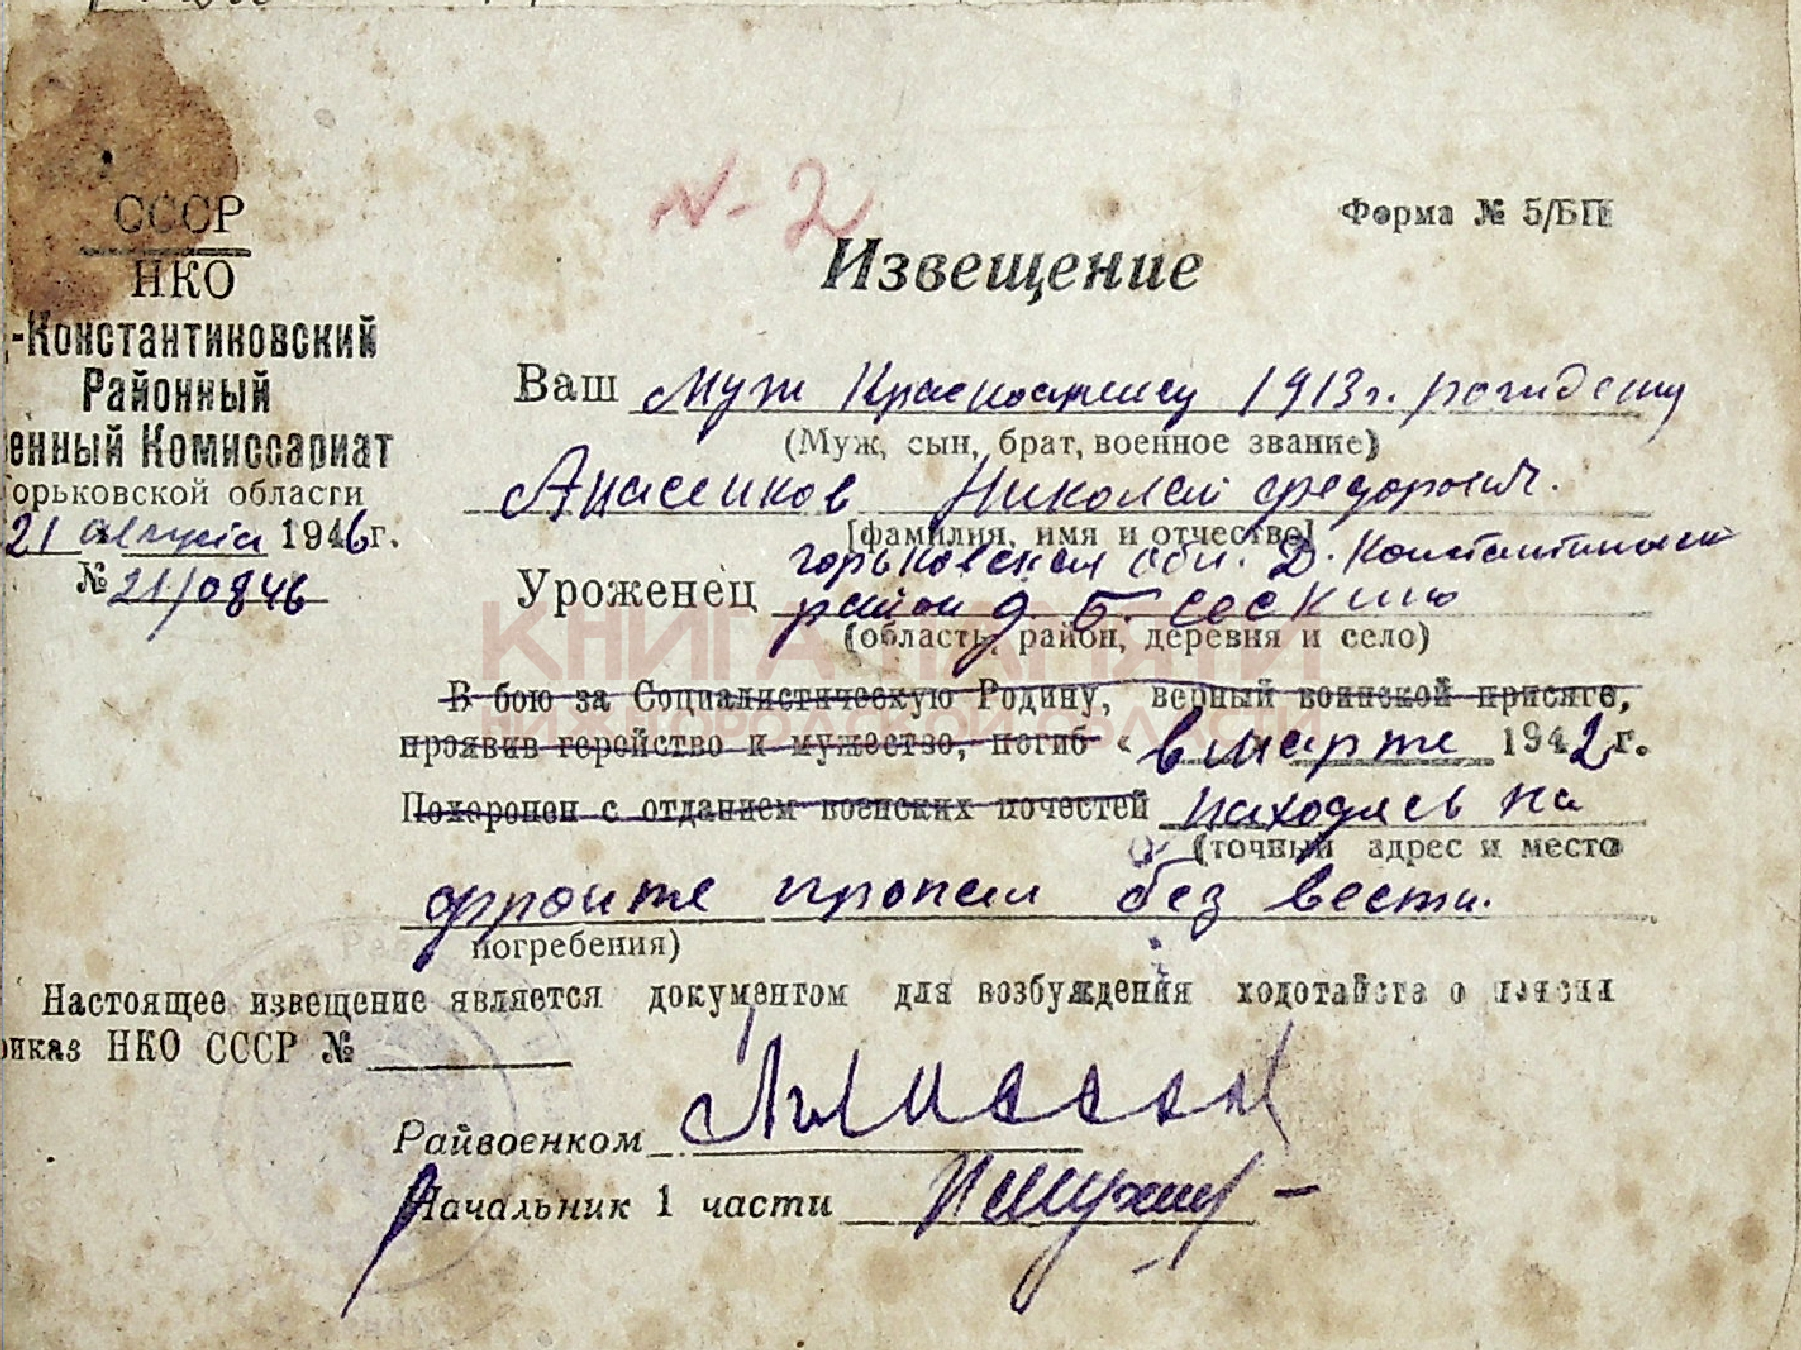 № 2
Форма № 5/БП
СССР
НКО
-Константиновский
Районный
енный Комиссариат
орьковской области
21 августа 1946г.
№ 21/0846
Извещение
Ваш муж Красноармеец 1913г. рождения
(Муж, сын, брат, военное звание)
Николай Федорович.
[фамилия, имя и отчество]
Горьковская обл. Д. Константиновский
Уроженец район д. Б. Сескино
(область, район, деревня и село)
КНИГА ПАМЯТИ
НИЖЕГОРОДСКОЙ ОБЛАСТИ
В бою за Социалистическую Родину, верный воинской присяге,
проявив геройство и мужество, погиб « в марте 1942г.
Похоронен с отданием воинских почестей находясь на
(точный адрес и место
фронте пропал без вести.
погребения)
Настоящее извещение является документом для возбуждения ходотайства о пенсии
риказ НКО СССР №
Райвоенком
Начальник 1 части